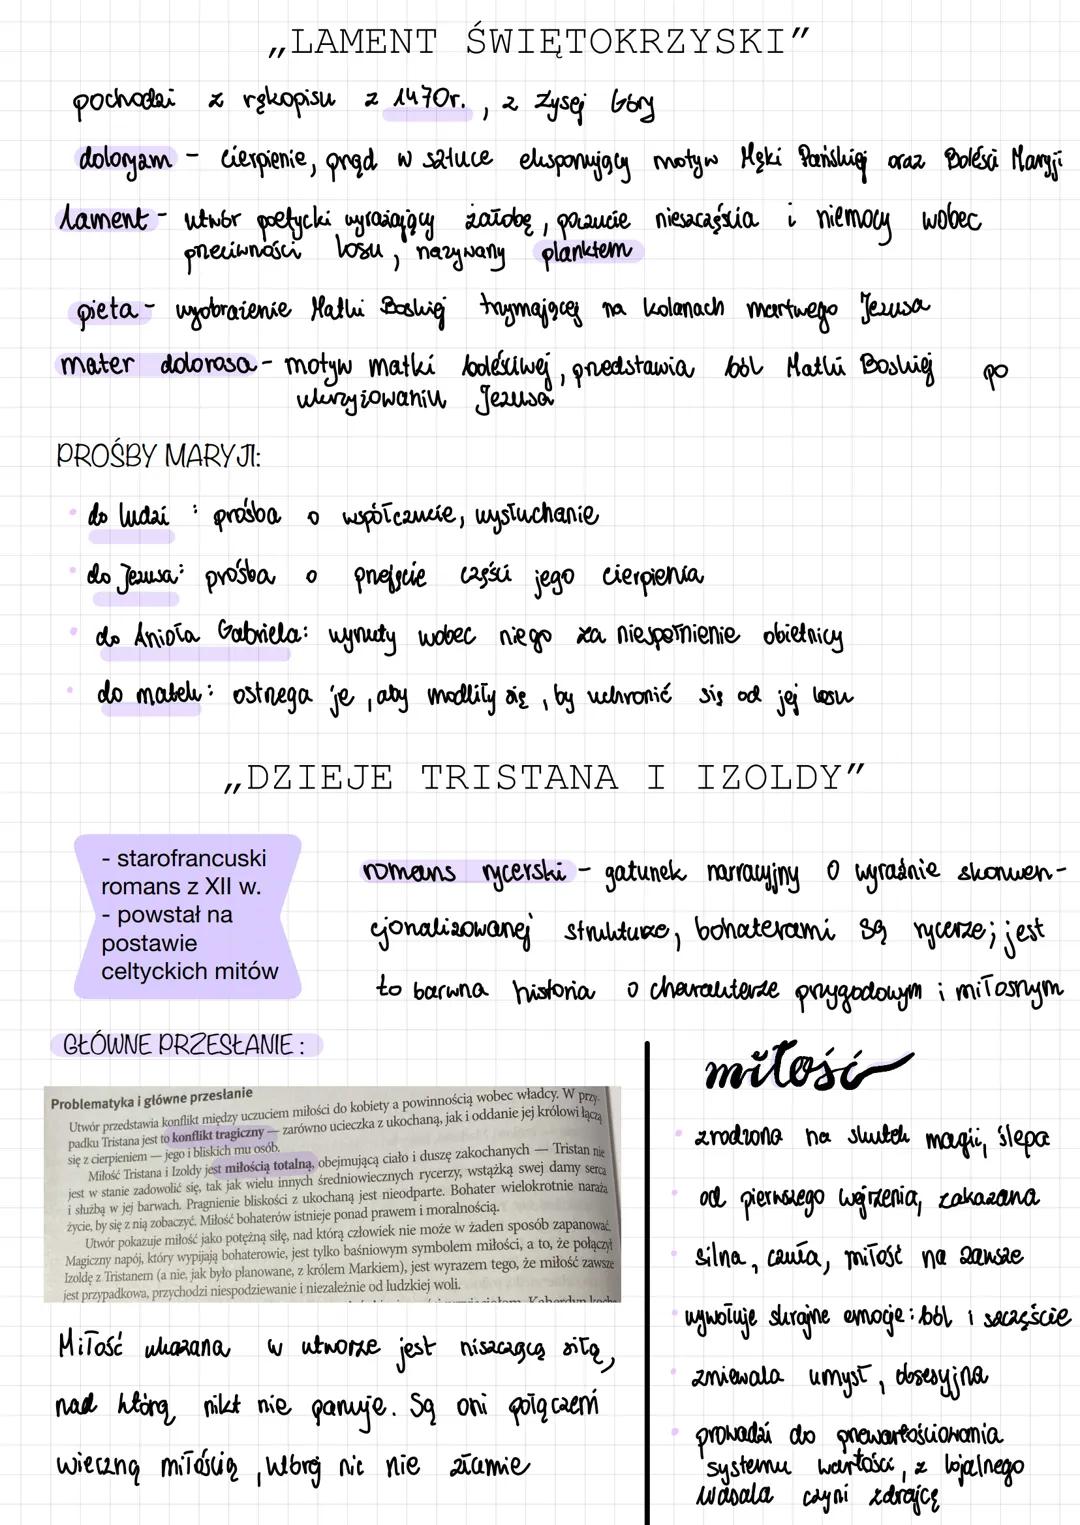 „LAMENT ŚWIĘTOKRZYSKI”
pochodzi z rękopisu z 1470r., z Łysej Góry
doloryzm - cierpienie, prąd w sztuce eksponujący motyw Męki Pańskiej oraz Boleści Maryji
lament - utwór poetycki wyrażający żałobę, poczucie nieszczęścia i niemocy wobec
przeciwności losu, nazywany planktem
pieta - wyobrażenie Matki Boskiej trzymającej na kolanach martwego Jezusa
mater dolorosa - motyw matki boleściwej, przedstawia ból Matki Boskiej po
ukrzyżowaniu Jezusa
PROŚBY MARYJI:
• do ludzi : prośba o współczucie, wysłuchanie
• do Jezusa: prośba o przejęcie części jego cierpienia
• do Anioła Gabriela: wyrzuty wobec niego za niespełnienie obietnicy
• do matek: ostrzega je, aby modliły się, by uchronić się od jej losu
„DZIEJE TRISTANA I IZOLDY”
- starofrancuski
romans z XII w.
- powstał na
postawie
celtyckich mitów
romans rycerski - gatunek narracyjny o wyraźnie skonwen-
cjonalizowanej strukturze, bohaterami są rycerze; jest
to barwna historia o charakterze przygodowym i miłosnym
GŁÓWNE PRZESŁANIE:
Problematyka i główne przesłanie
Utwór przedstawia konflikt między uczuciem miłości do kobiety a powinnością wobec władcy. W przy-
padku Tristana jest to konflikt tragiczny — zarówno ucieczka z ukochaną, jak i oddanie jej królowi łączą
się z cierpieniem — jego i bliskich mu osób.
Miłość Tristana i Izoldy jest miłością totalną, obejmującą ciało i duszę zakochanych — Tristan nie
jest w stanie zadowolić się, tak jak wielu innych średniowiecznych rycerzy, wstążką swej damy serca
i służbą w jej barwach. Pragnienie bliskości z ukochaną jest nieodparte. Bohater wielokrotnie naraża
życie, by się z nią zobaczyć. Miłość bohaterów istnieje ponad prawem i moralnością.
Utwór pokazuje miłość jako potężną siłę, nad którą człowiek nie może w żaden sposób zapanować.
Magiczny napój, który wypijają bohaterowie, jest tylko baśniowym symbolem miłości, a to, że połączył
Izoldę z Tristanem (a nie, jak było planowane, z królem Markiem), jest wyrazem tego, że miłość zawsze
jest przypadkowa, przychodzi niespodziewanie i niezależnie od ludzkiej woli.
Miłość ukazana w utworze jest niszczącą siłą,
nad którą nikt nie panuje. Są oni połączeni
wieczną miłością, której nic nie złamie
miłość
• zrodzona na skutek magii, ślepa
• od pierwszego wejrzenia, zakazana
• silna, czuła, miłość na zawsze
• wywołuje skrajne emocje: ból i szczęście
• zniewala umysł, obsesyjna
• prowadzi do przewartościowania
systemu wartości, z lojalnego
wasala czyni zdrajcę